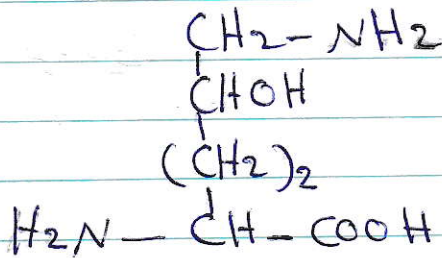 CH2-NH2
CHOH
(CH2)2
H2N-CH-COOH